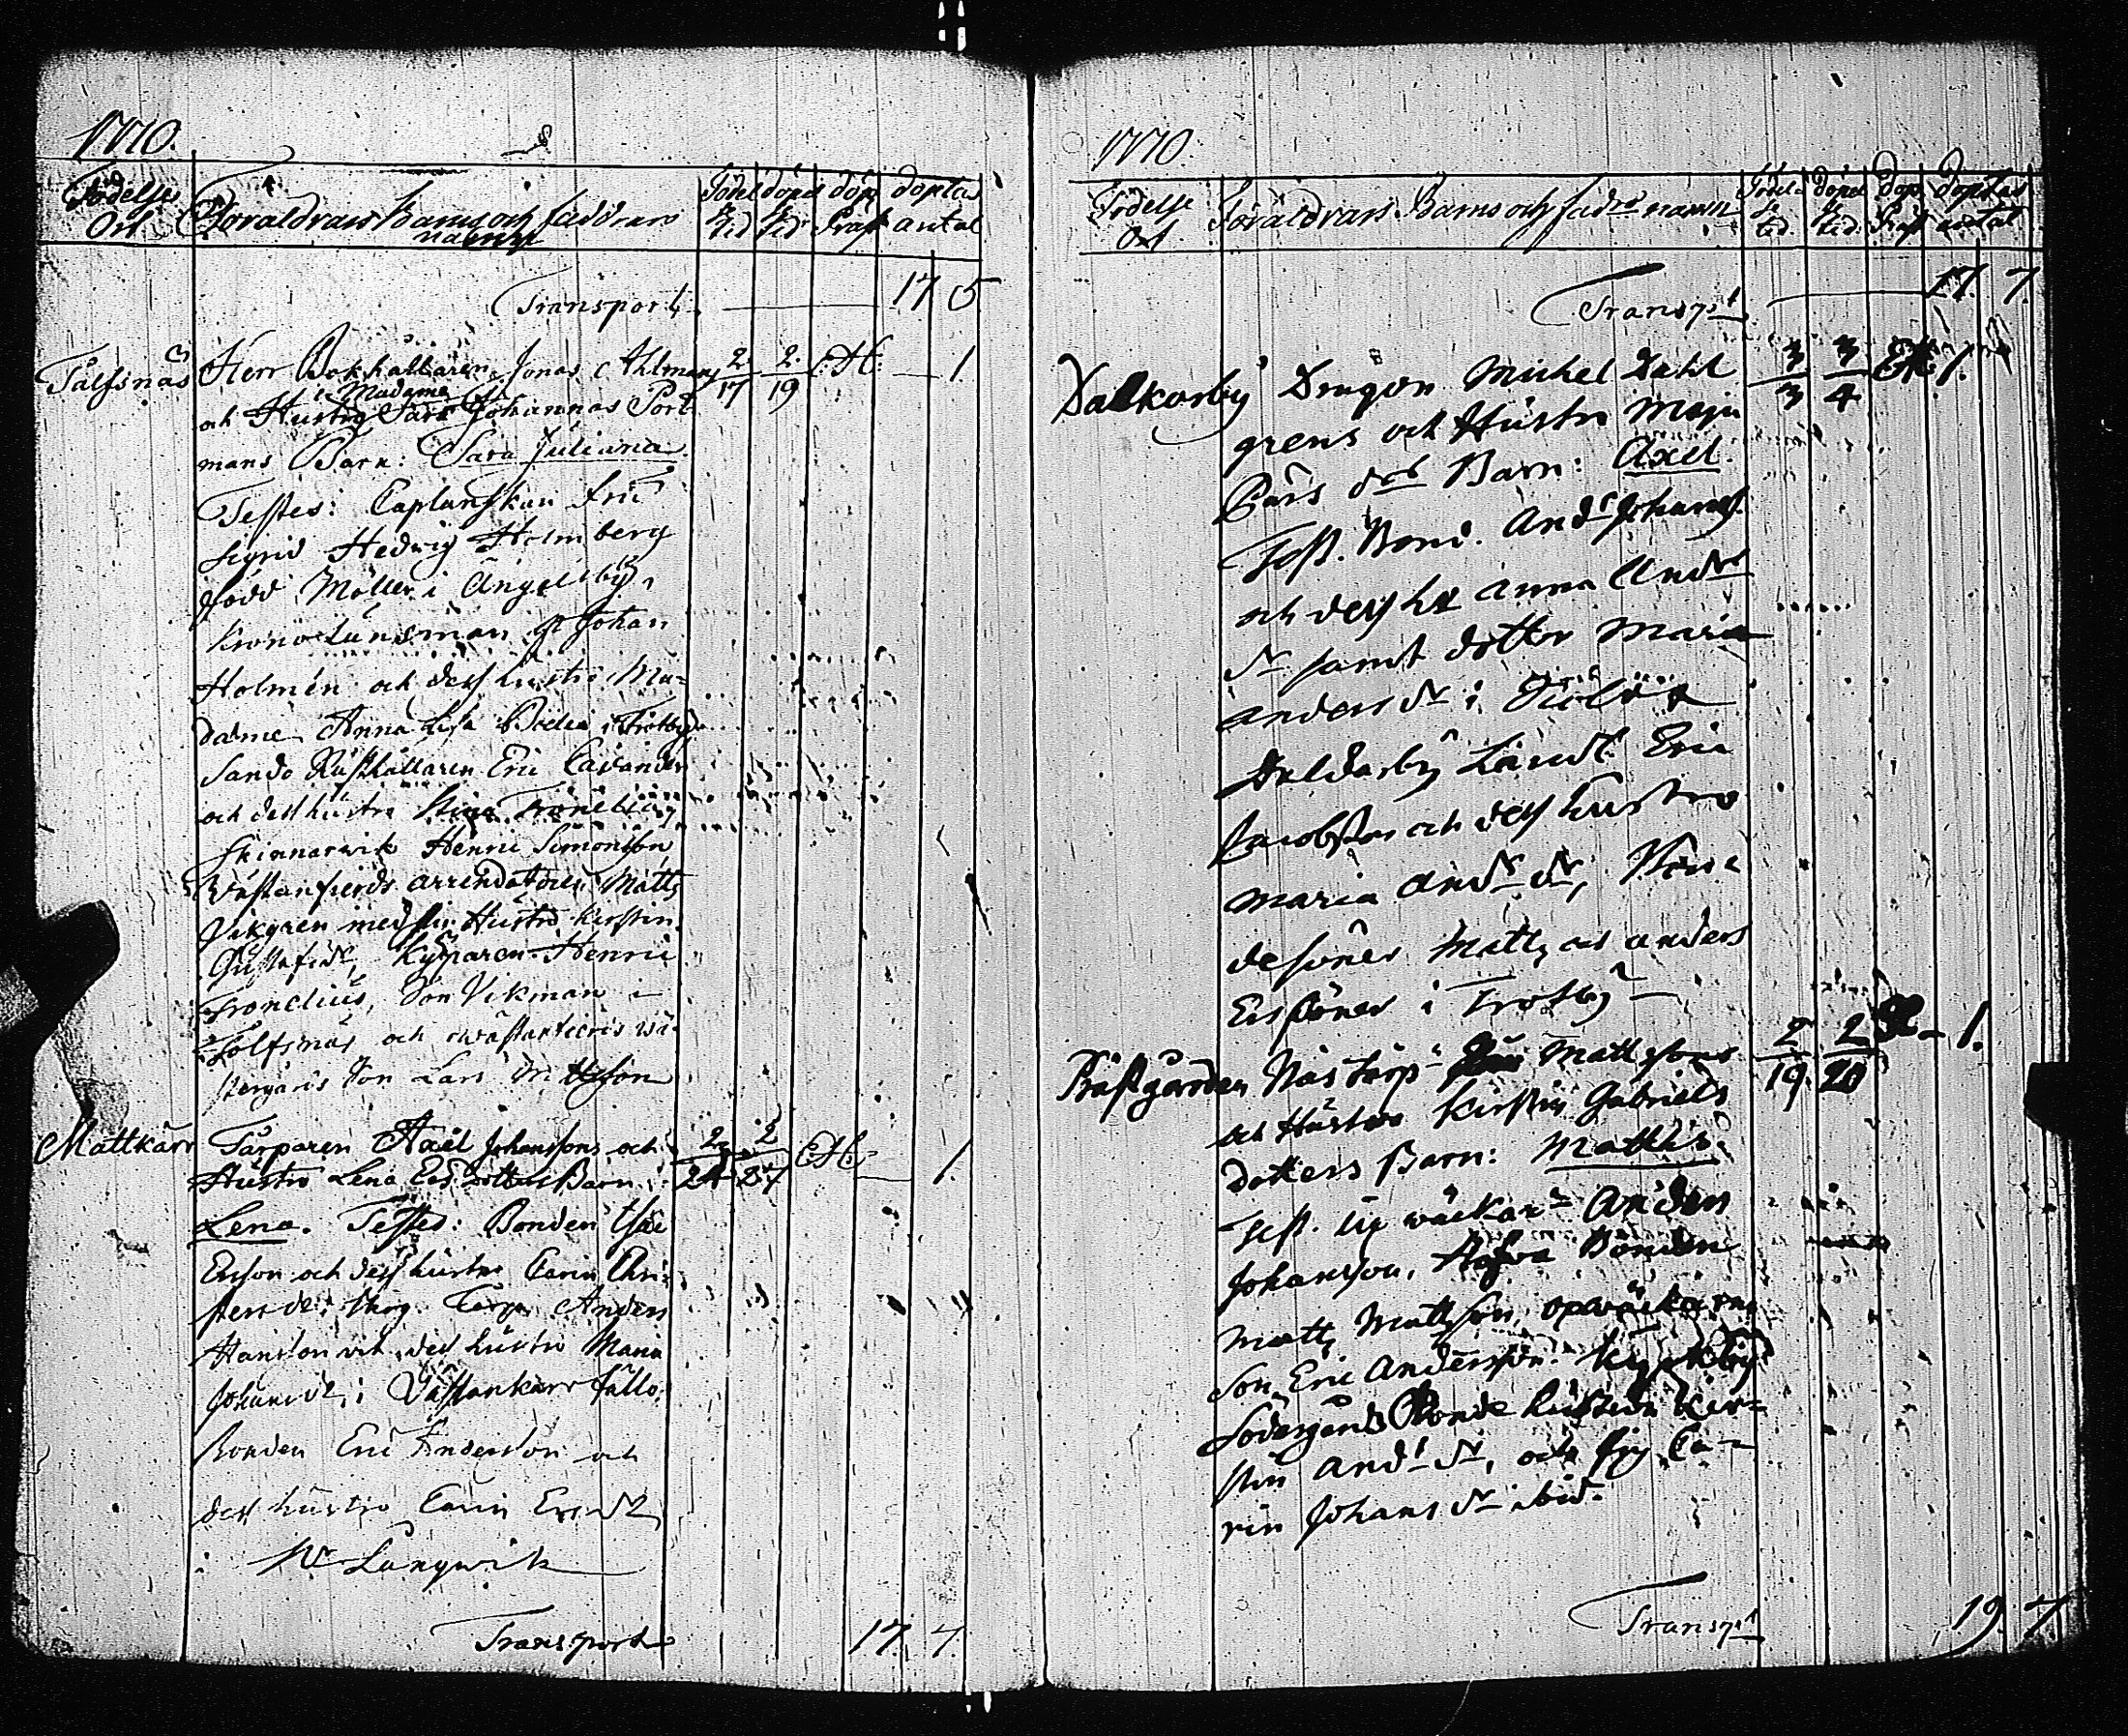 1770.
Födelse Ort
Föräldrars Barns och faddrars namn
Födelse tid
döpelse tid
döp. Präst
döptas antal
Transport 17 5
Tälfsnäs Herr Bokhållaren Jonas Ahlmans 2/17 2/19 EH: 1.
och Hustru Madame Sara Johannas Port
mans Barn: Sara Juliana.
Testes: Caplanskan fru
Sigrid Hedwig Holmberg
född Möller i Ängelsby,
Krono Länsman Johan
Holmén och dess hustru Ma-
dame Anna Lisa i Trotby
Sando Rusthållaren Eric Cavander
och dess hustru Stina
Skinnarwik Henric Simonsson
Wästanfierds arrendatoren Matts
Vikgren med sin Hustru Kirstin
Gustafsdr, Kypparen Henric
Fronelius, Son Vikman i
Tolfsnäs och
Son Lars Mattsson
Mattkärr Tarparen Axel Johanssons och 2/24 2/27 EH: 1.
Hustru Lena Ers dotters Barn:
Lena. Testes: Bonden
Ersson och dess hustru Carin Chri-
Anders
Hansson och dess hustru Maria
Johansdr, i Wästankärr fällo
Bonden Eric Andersson och
dess hustru Carin Ersdr
i Nr Långwik
Transport 17. 7.
1770.
Födelse Ort
Föräldrars Barns och fadrs namn
Födelse tid.
döpel tid.
Dop Präst
Döptas antal
Transpt 17. 7.
Dalkarby Dragon Michel Dahl 3/3 3/4 EH. 1.
grens och Hustru Maja
Lars dotr Barn: Axel.
Test. Bond. Ands Johans
och dess hu anna Anders
dr samt dotter Maria
anders dr i
Dalkarby Landt Eric
Jacobsson och dess hustru
maria Andrs dr, Bon-
desöner Matts och anders
Erssöner i Trotby
Prästgården Näs tarp Mattssons 2/19 2/20 1.
och Hustru Kirstin Gabriels
dotters Barn: Matthis.
Test. Anders
Johansson, Bonden
Matts Mattsson,
Son Eric Andersson. Kyrkby
Södergårds Bonde hustrun Kir-
stin Andrs dr, och pig. Ca-
rin Johans dr ibid.
Transpt 19. 7.